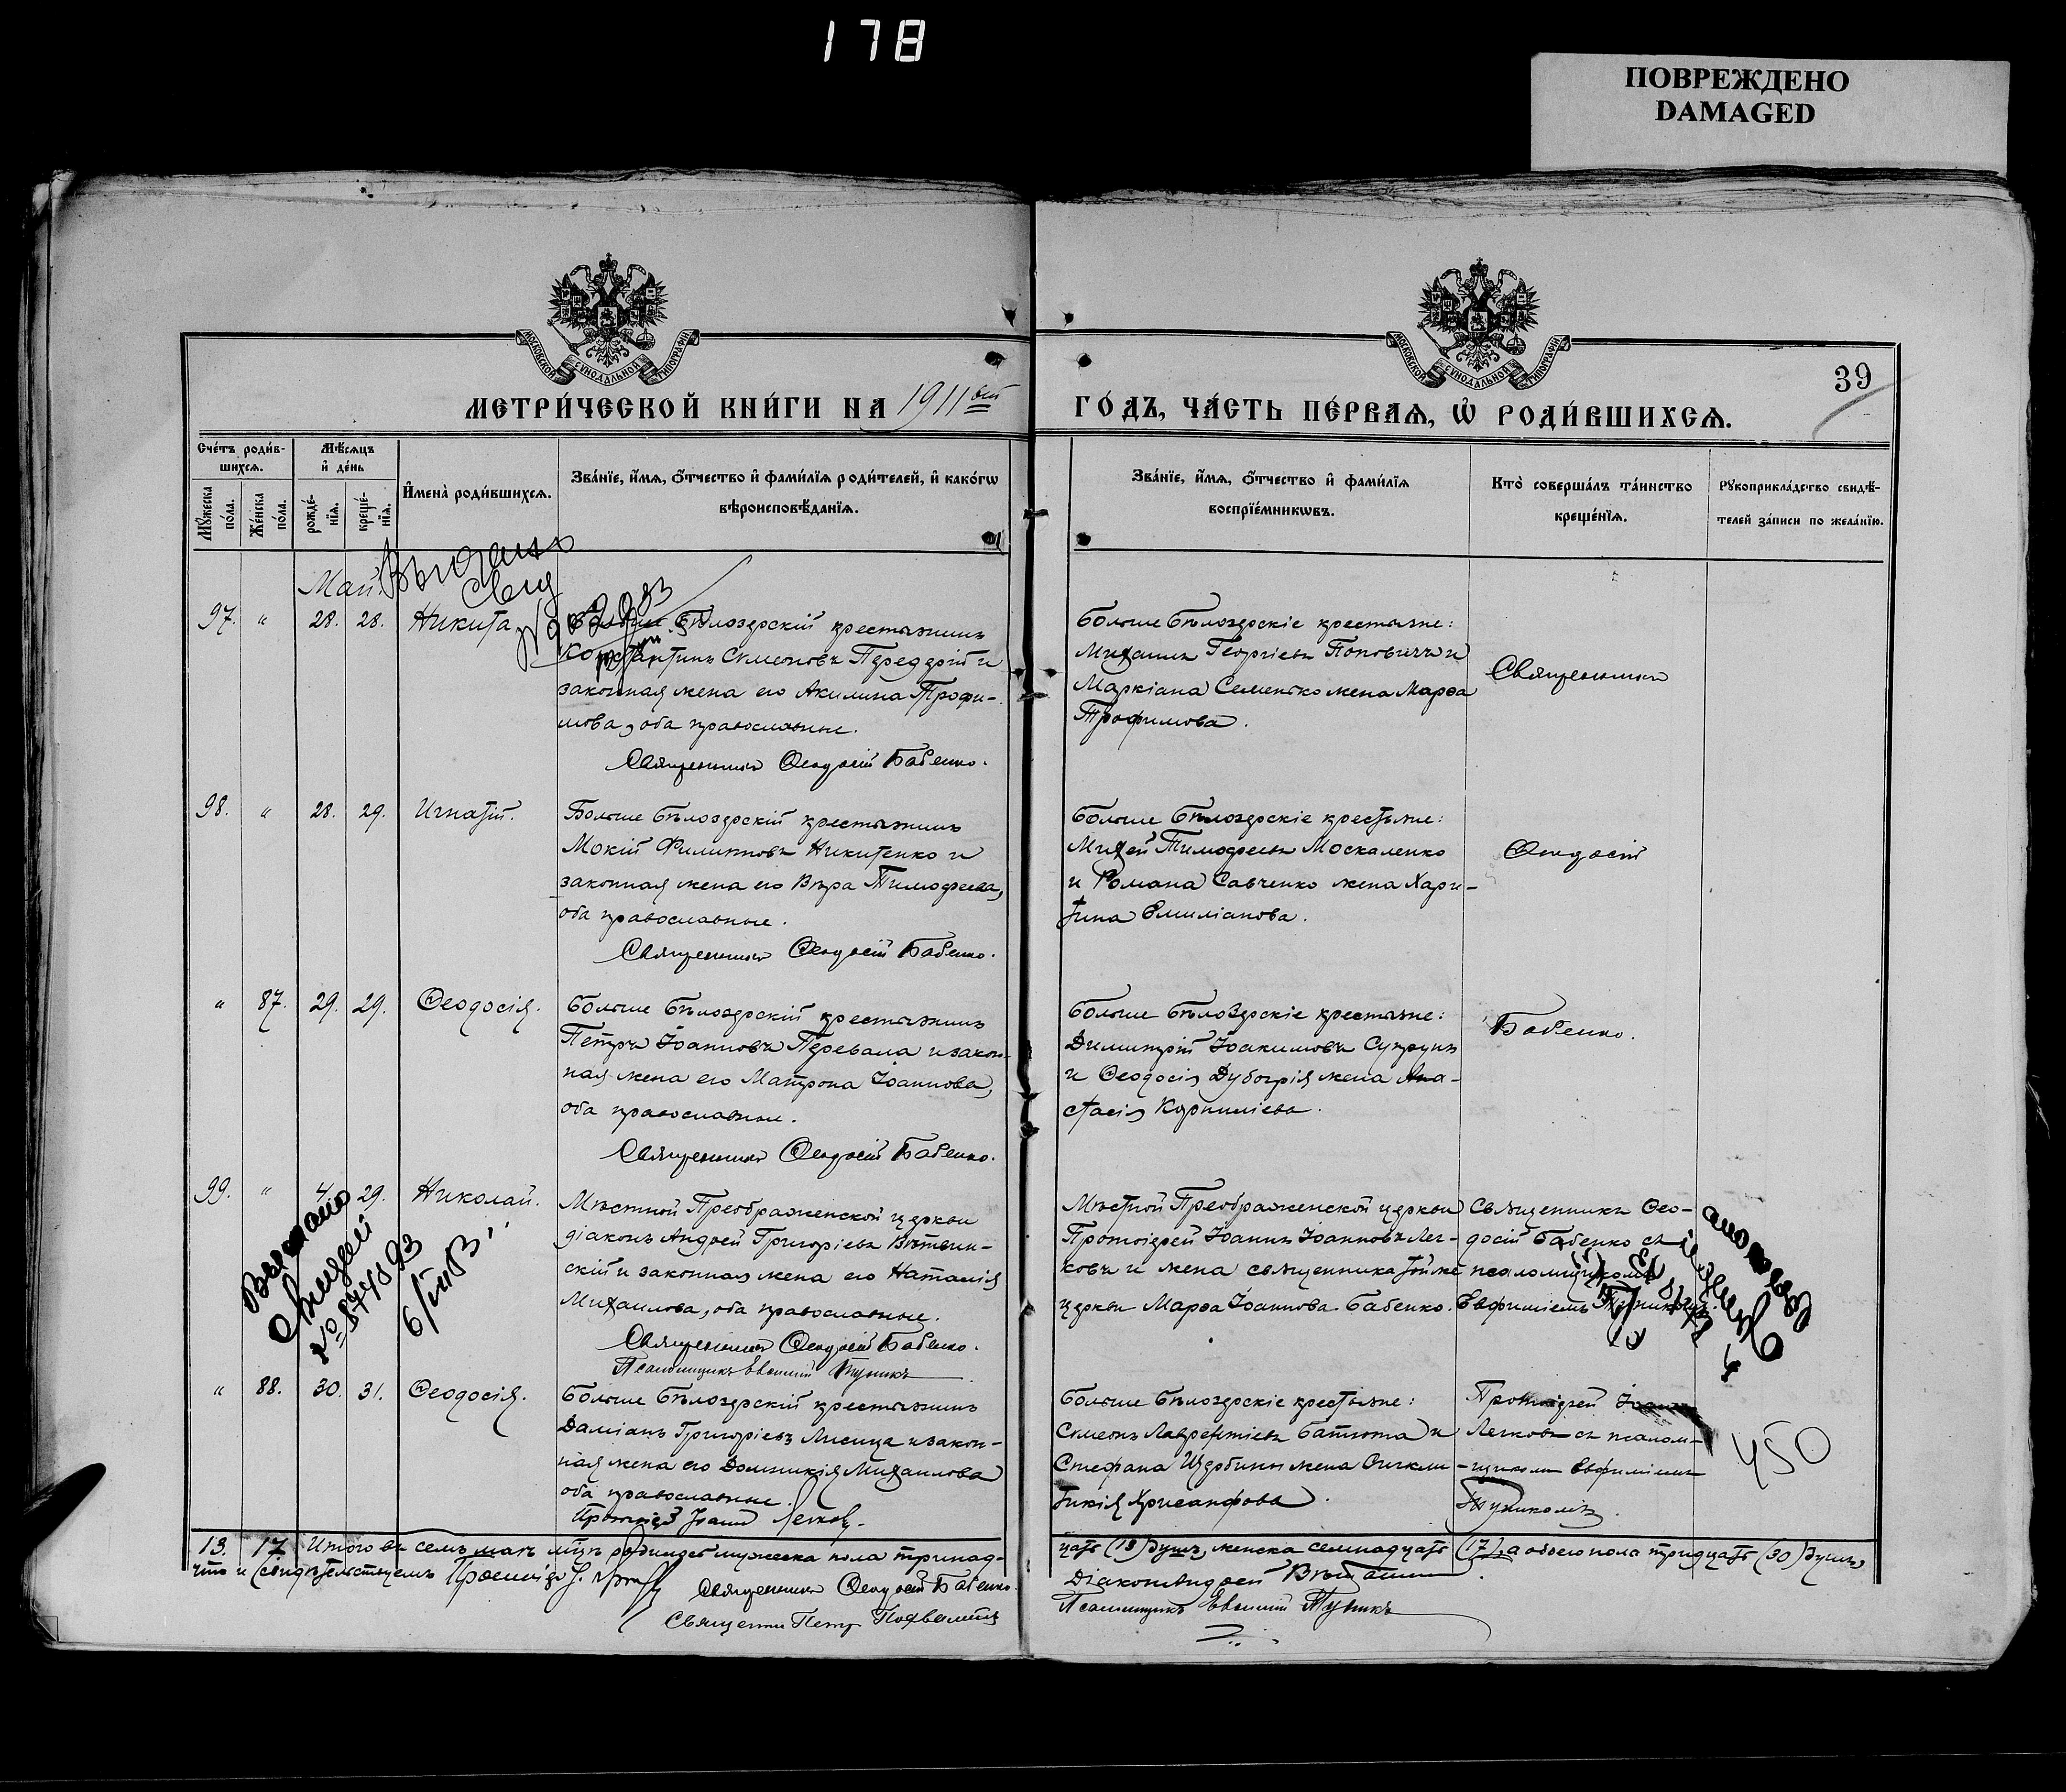 178
ПОВРЕЖДЕНО
DAMAGED
МОСКОВСКОЙ СѴНОДАЛЬНОЙ ТИПОГРАФІИ
МОСКОВСКОЙ СѴНОДАЛЬНОЙ ТИПОГРАФІИ
39
МЕТРИ́ЧЕСКОЙ КНИ́ГИ НА 1911ый ГО́ДЪ, ЧА́СТЬ ПЕ́РВАѦ, Ѡ҆ РОДИ́ВШИХСѦ.
Сче́тъ роди́в-
шихсѧ.
Мѣ́сѧцъ
и҆ де́нь
Мꙋ́жеска по́ла.
Же́нска по́ла.
рожде́-
нїѧ.
креще́-
нїѧ.
И҆мена̀ роди́вшихсѧ.
Зва́нїе, и҆́мѧ, ѻ҆́тчество и҆ фами́лїѧ роди́телей, и҆ како́гѡ
вѣроисповѣ́данїѧ.
Зва́нїе, и҆́мѧ, ѻ҆́тчество и҆ фами́лїѧ
воспрїе́мникѡвъ.
Кто̀ соверша́лъ та́инство
креще́нїѧ.
Рꙋкоприкла́дство свидѣ́-
телей за́писи по жела́нїю.
Май.
Выдано
97. " 28. 28. Никита
Больше Бѣлозерскій крестьянинъ
Константинъ Симеоновъ Передерій и
законная жена его Акилина Трофи-
мова, оба православные.
Священникъ Ѳеодосій Бабенко.
Больше Бѣлозерскіе крестьяне:
Михаилъ Георгіевъ Поповичъ и
Маркіана Семенько жена Марѳа
Трофимова.
Священникъ
98. " 28. 29. Игнатій.
Больше Бѣлозерскій крестьянинъ
Мокій Филипповъ Никитенко и
законная жена его Вѣра Тимофеева,
оба православные.
Священникъ Ѳеодосій Бабенко.
Больше Бѣлозерскіе крестьяне:
Михей Тимофеевъ Москаленко
и Романа Савченко жена Хари-
тина Емиліанова.
Ѳеодосій
" 87. 29. 29. Ѳеодосія.
Больше Бѣлозерскій крестьянинъ
Петръ Іоанновъ Перевала и закон-
ная жена его Матрона Іоаннова,
оба православные.
Священникъ Ѳеодосій Бабенко.
Больше Бѣлозерскіе крестьяне:
Димитрій Іоакимовъ Супрунъ
и Ѳеодосія Дубогрія жена Ана-
стасія Корниліева.
Бабенко.
99. " 4. 29. Николай.
Мѣстной Преображенской церкви
діаконъ Андрей Григоріевъ
скій и законная жена его Наталія
Михаилова, оба православные.
Священникъ Ѳеодосій Бабенко.
Псаломщикъ Евфимій Пуникъ
Мѣстной Преображенской церкви
Протоіерей Іоаннъ Іоанновъ Лег-
ковъ и жена священника той же
церкви Марѳа Іоаннова Бабенко.
Священникъ Ѳео-
досій Бабенко съ
псаломщикомъ
Евфиміемъ
Выдано
" 88. 30. 31. Ѳеодосія.
Больше Бѣлозерскій крестьянинъ
Даміанъ Григоріевъ Лисица и закон-
ная жена его Домникія Михаилова
оба православные.
Протоіерей Іоаннъ Легковъ.
Больше Бѣлозерскіе крестьяне:
Симеонъ Лаврентіевъ Батюта и
Стефана Щербины жена Синкли-
тикія Хрисанфова.
Протоіерей Іоаннъ
Легковъ съ псалом-
щикомъ Евфиміемъ
450
13. 17 Итого въ семъ маѣ мѣсяцѣ родилось мужеска пола тринад-
цать (13) душъ, женска семнадцать (17), а обоего пола тридцать (30) душъ,
что и свидѣтельствуемъ
Священникъ Ѳеодосій Бабенко.
Священникъ Петръ
Діаконъ Андрей
Псаломщикъ Евфимій Пуникъ